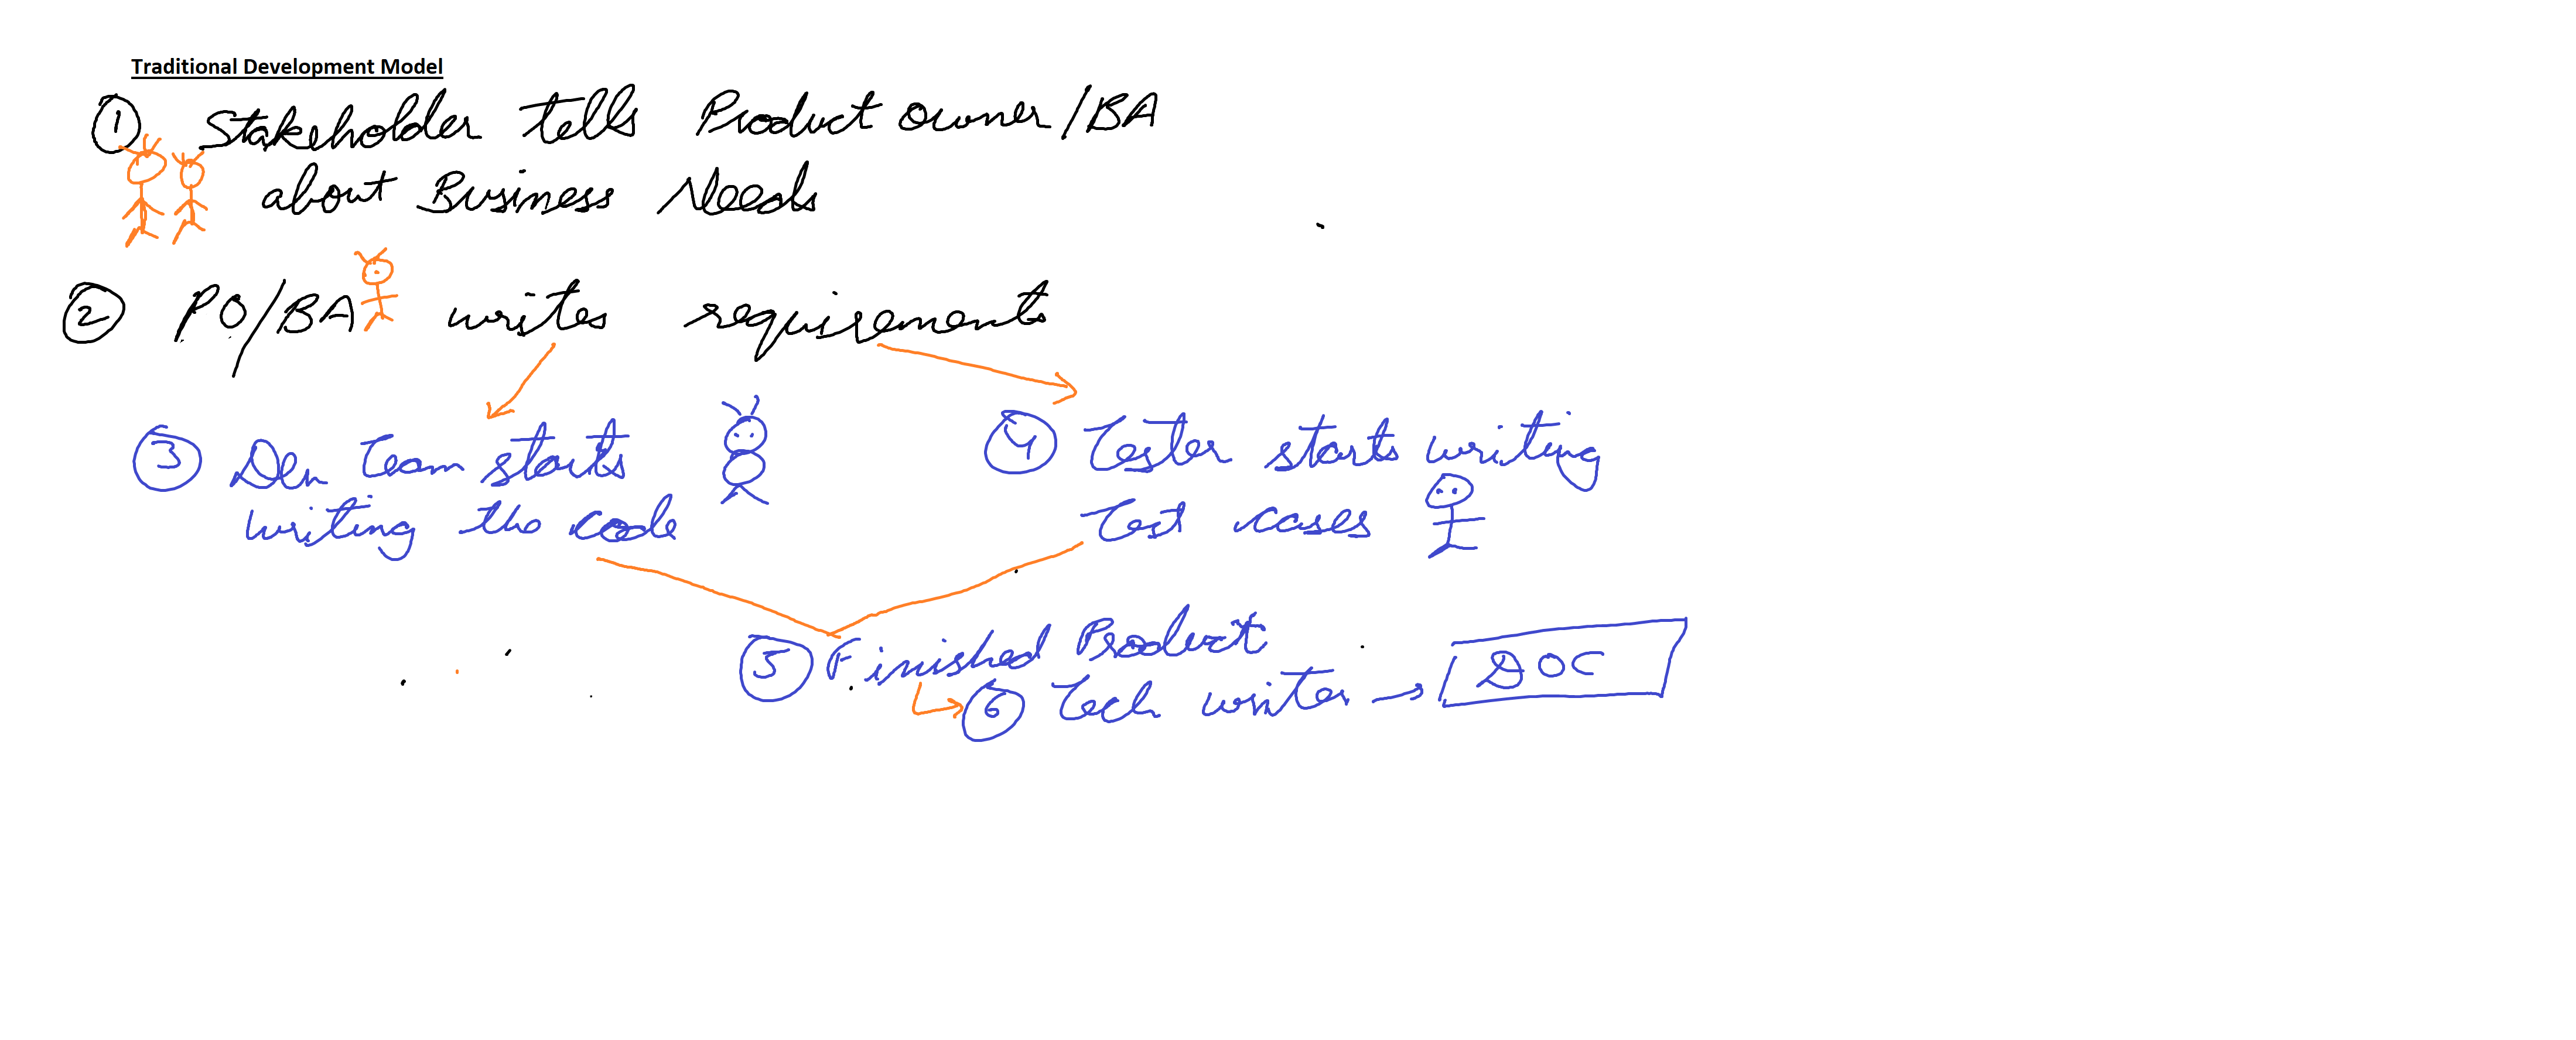 Traditional Development Model
① Stakeholder tells Product owner/BA
about Business Needs
② PO/BA writes requirements
③ Dev team starts
writing the code
④ Tester starts writing
Test cases
⑤ Finished Product
⑥ Tech writer → DOC